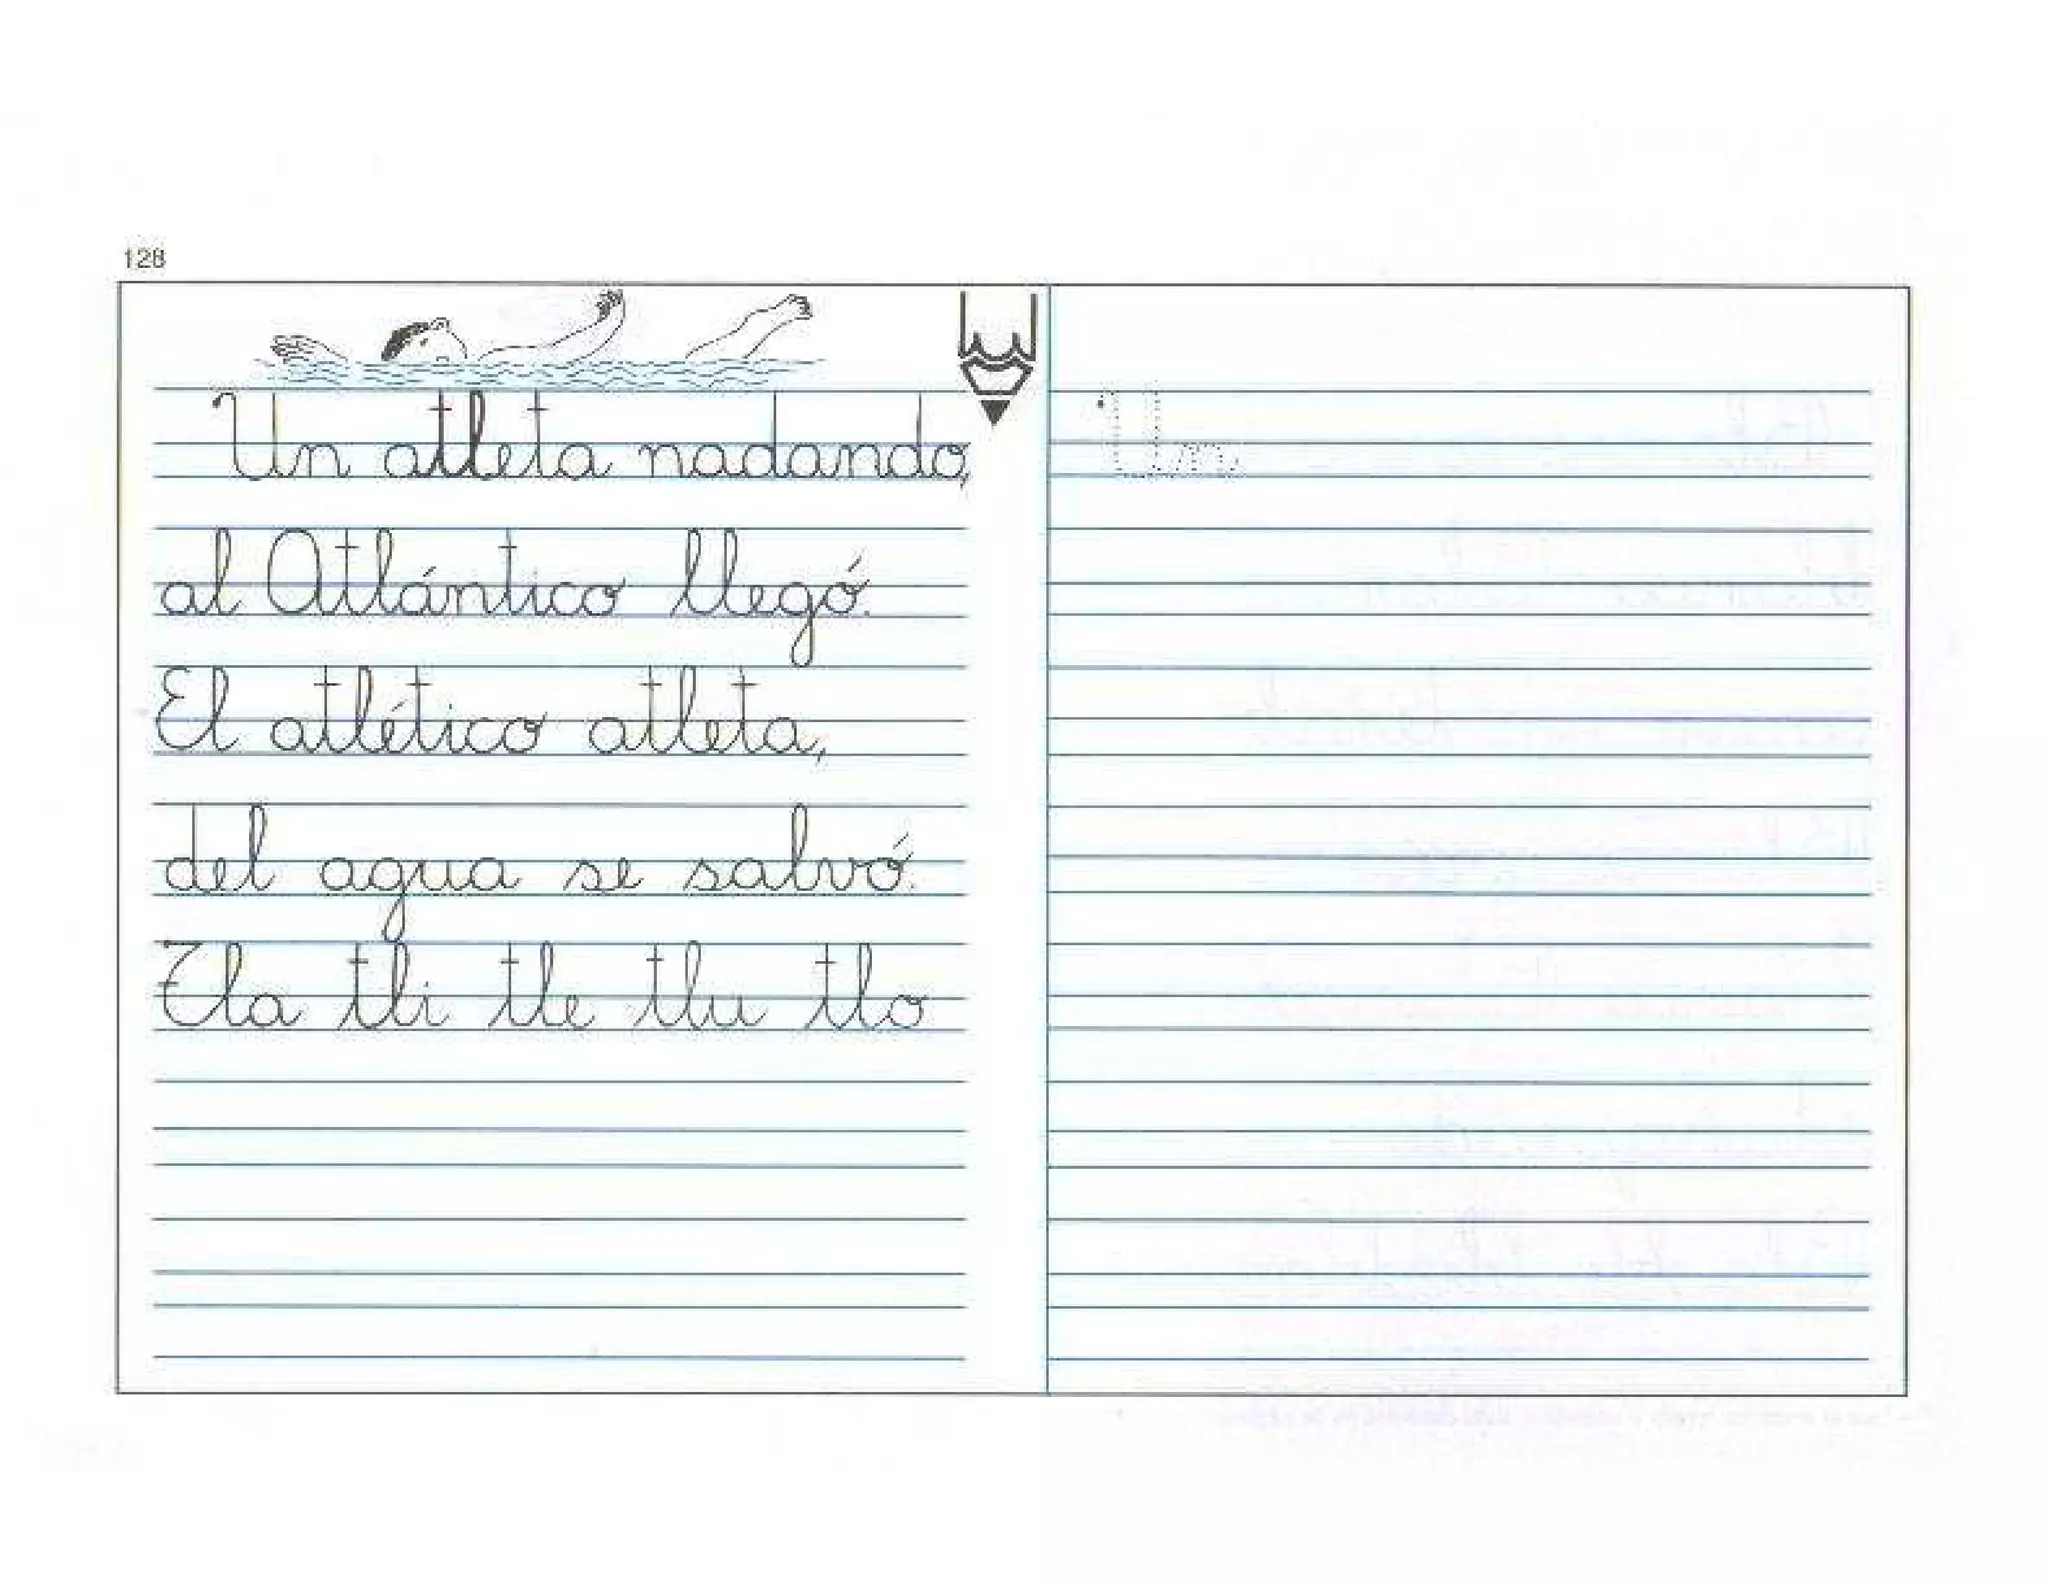 128
Un atleta nadando,
al Atlántico llegó.
El atlético atleta,
del agua se salvó.
Tla tli tle tlu tlo
Un